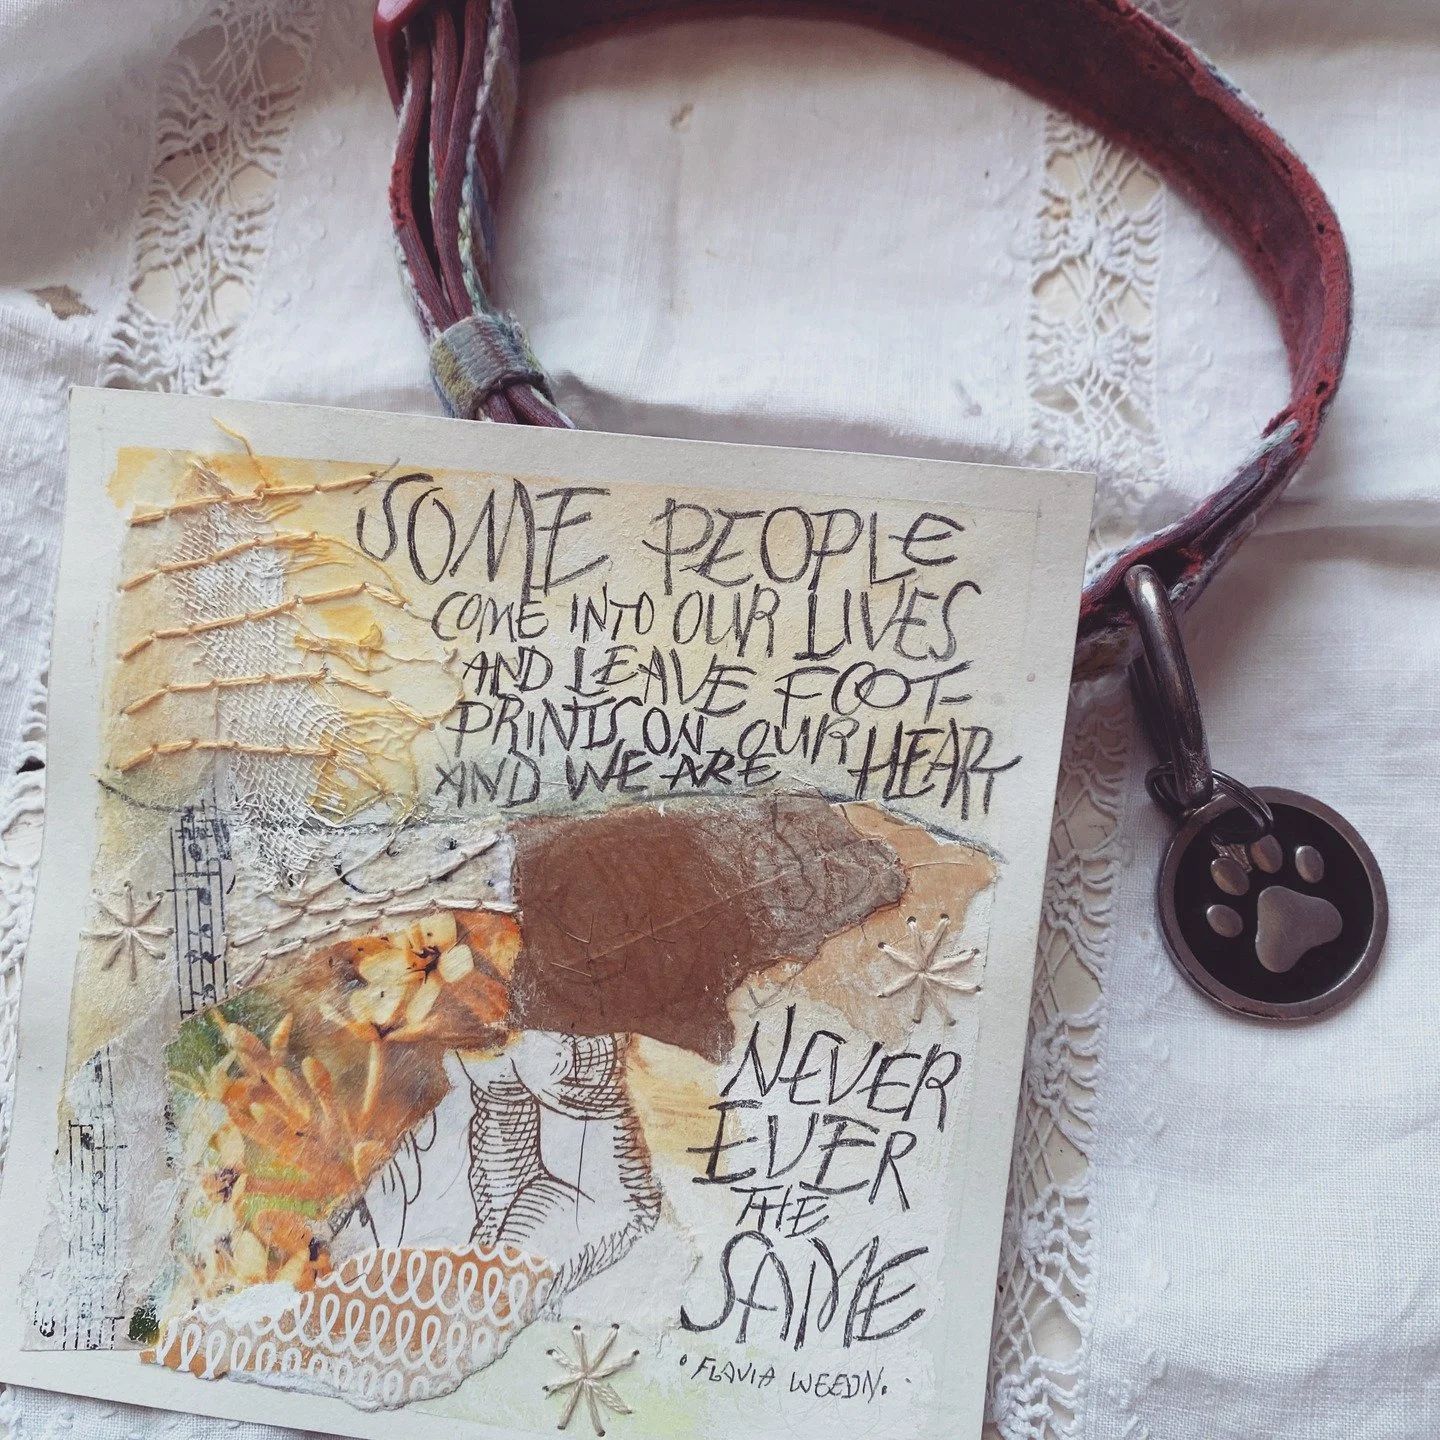 SOME PEOPLE
COME INTO OUR LIVES
AND LEAVE FOOT-
PRINTS ON OUR HEART
AND WE ARE
NEVER
EVER
THE
SAME
FLAVIA WEEDN.